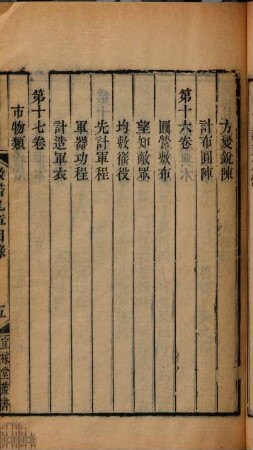 方變銳陳
計布圓陣
第十六卷
圓營敷布
望知敵眾
均敷徭役
先計軍程
軍器功程
計造軍衣
第十七卷
市物類
數書九章目錄
五
宜稼堂叢書